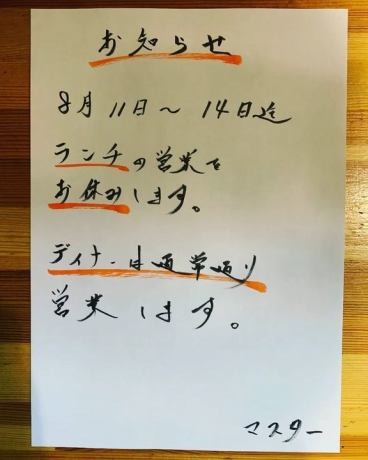 お知らせ
8月11日〜14日迄
ランチの営業を
お休みします。
ディナーは通常通り
営業します。
マスター